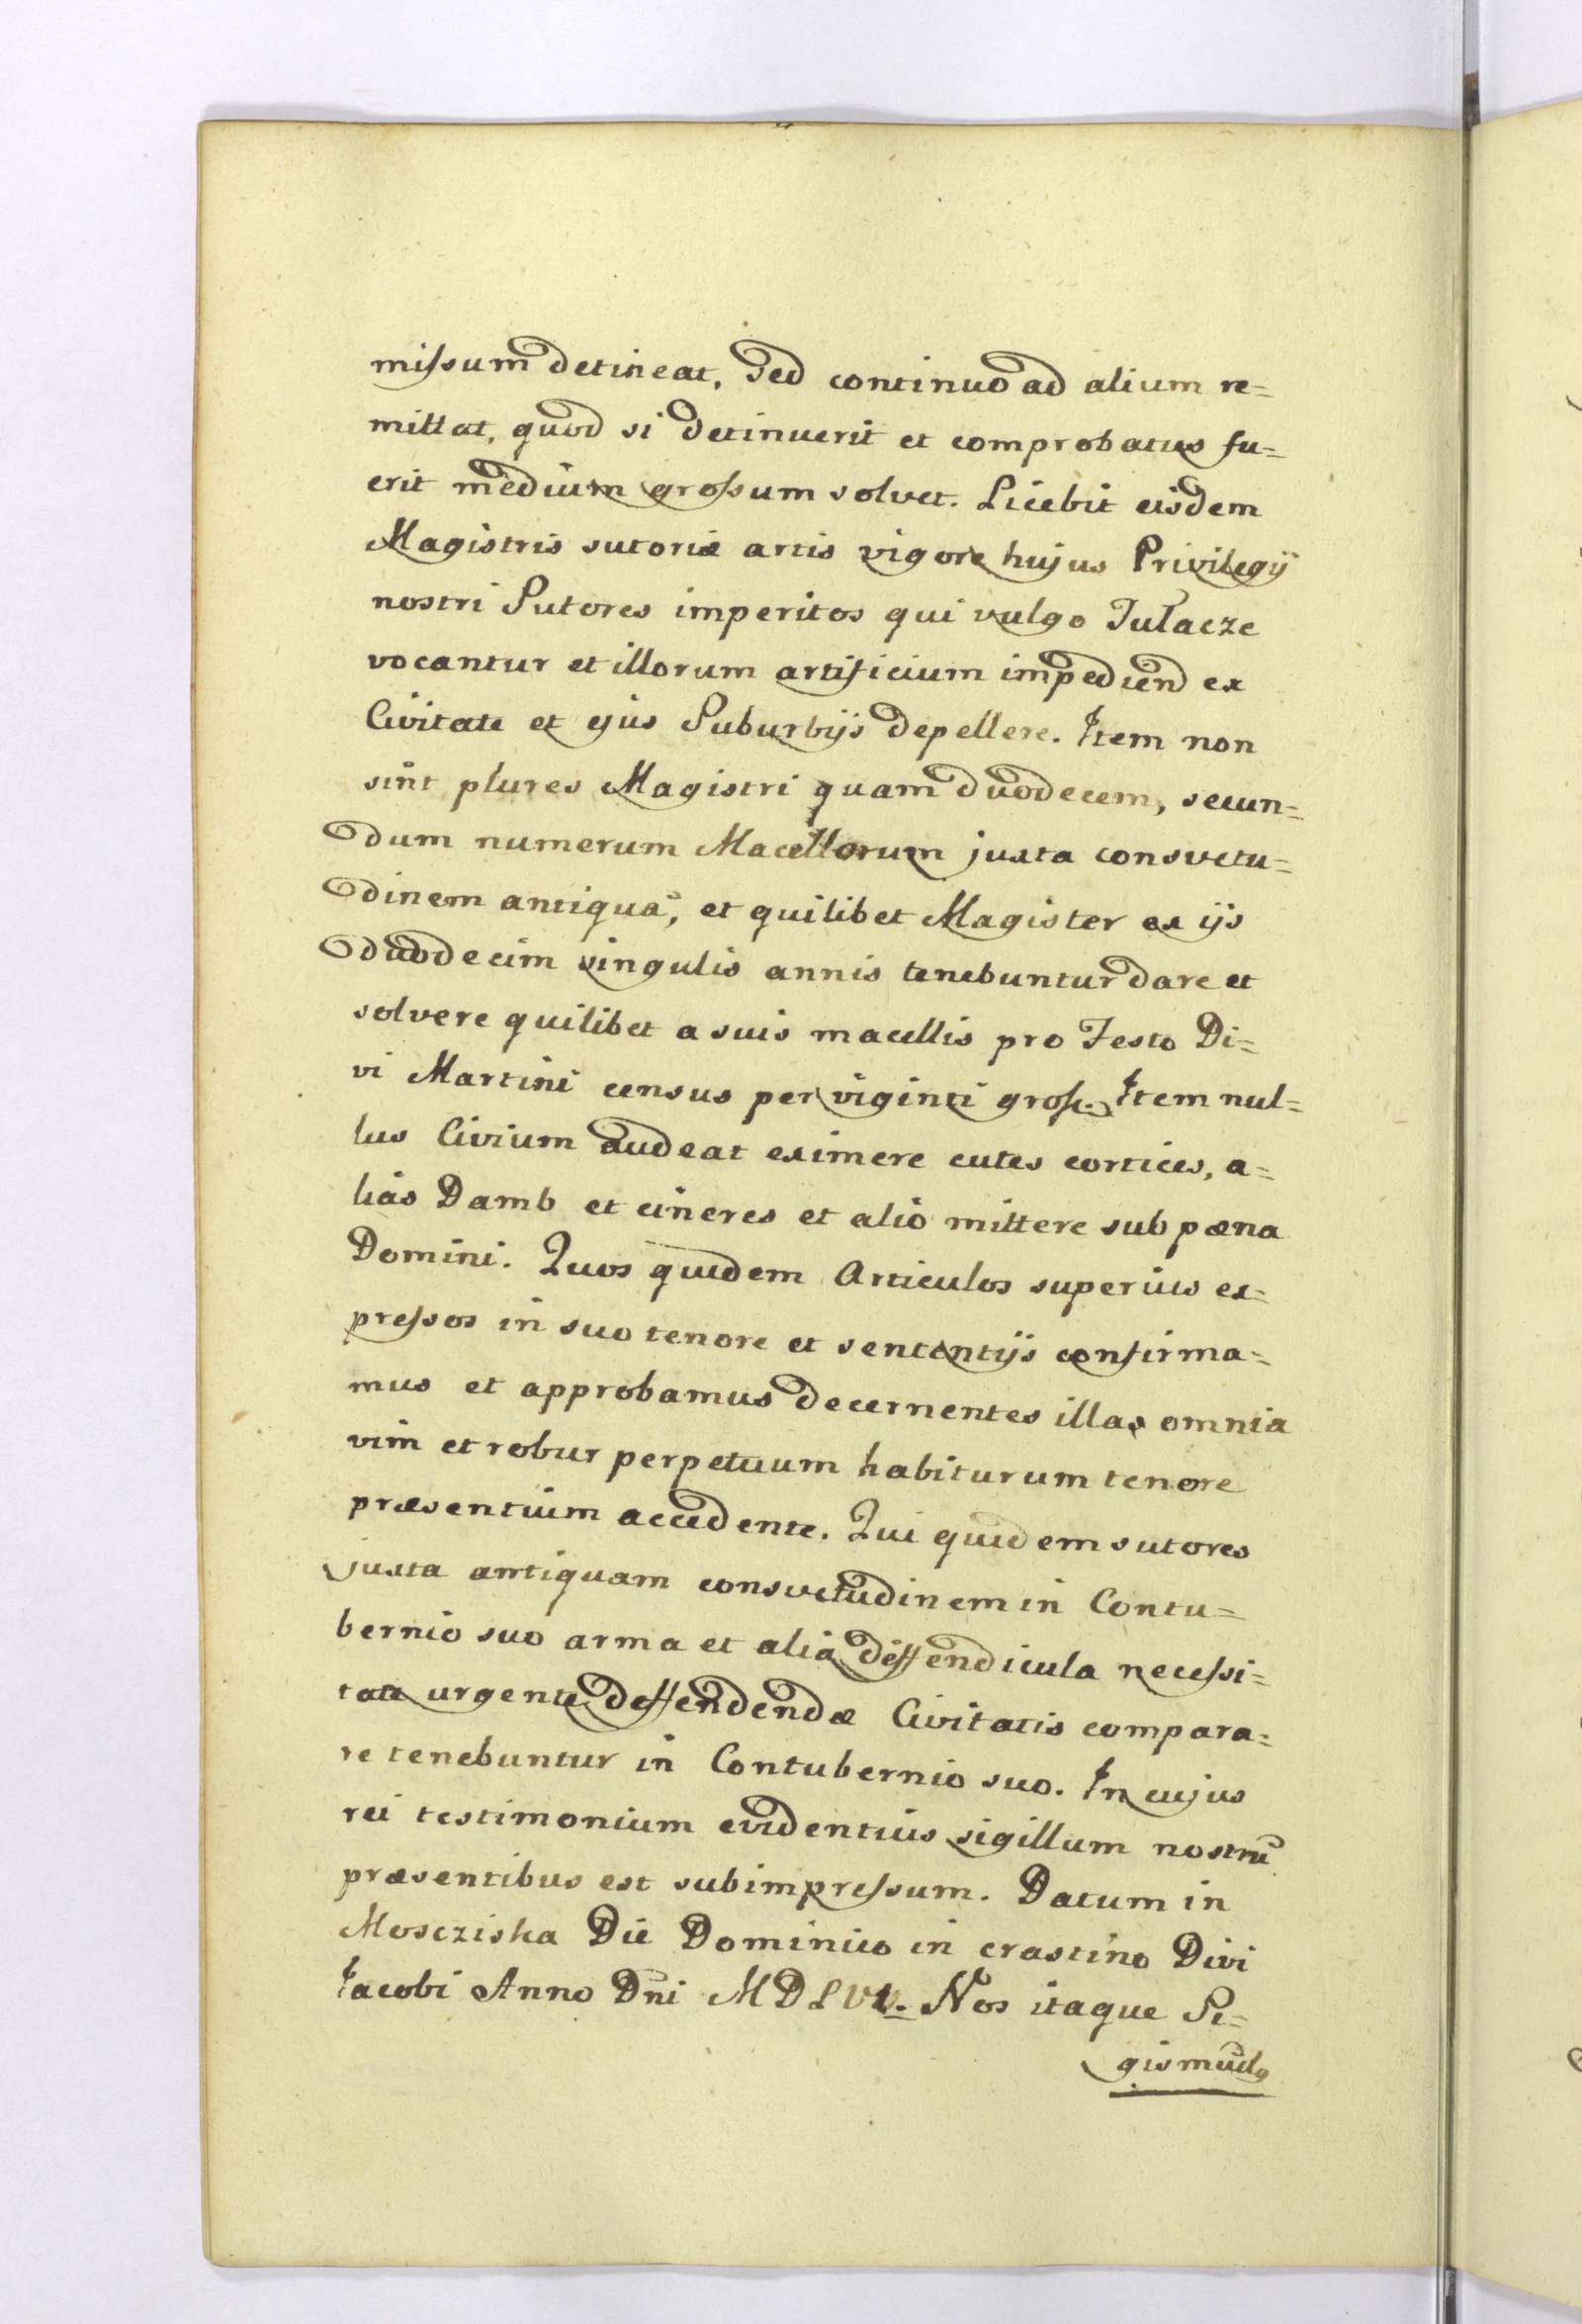 missum detineat. Sed continuo ad alium re=
mittat, quod si detinuerit et comprobatus fu=
erit medium grossum solvet. Licebit eisdem
Magistris sutoriæ artis vigore hujus Privilegij
nostri Sutores imperitos qui vulgo Tułacze
vocantur et illorum artificium impediend ex
Civitate et ejus Suburbijs depellere. Item non
sint plures Magistri quam duodecem, secun=
dum numerum Macellorum juxta consvetu=
dinem antiquã, et quilibet Magister ex ijs
duodecim singulis annis tenebuntur dare et
solvere quilibet a suis macellis pro Festo Di=
vi Martini census per viginti gross. Item nul=
lus Civium audeat eximere cutes cortices, a=
lias Damb et cineres et alio mittere sub pæna
Domini. Quos quidem Articulos superius ex=
pressos in suo tenore et sententijs confirma=
mus et approbamus decernentes illas omnia
vim et robur perpetuum habiturum tenore
præsentium accedente. Qui quidem sutores
juxta antiquam consvetudinem in Contu=
bernio suo arma et alia deffendicula necessi=
tate urgente deffendendæ Civitatis compara=
re tenebuntur in Contubernio suo. In cujus
rei testimonium evidentius sigillum nostrũ
præsentibus est subimpressum. Datum in
Moscziska Die Dominico in crastino Divi
Jacobi Anno Dni Nos itaque Si=
gismũdq